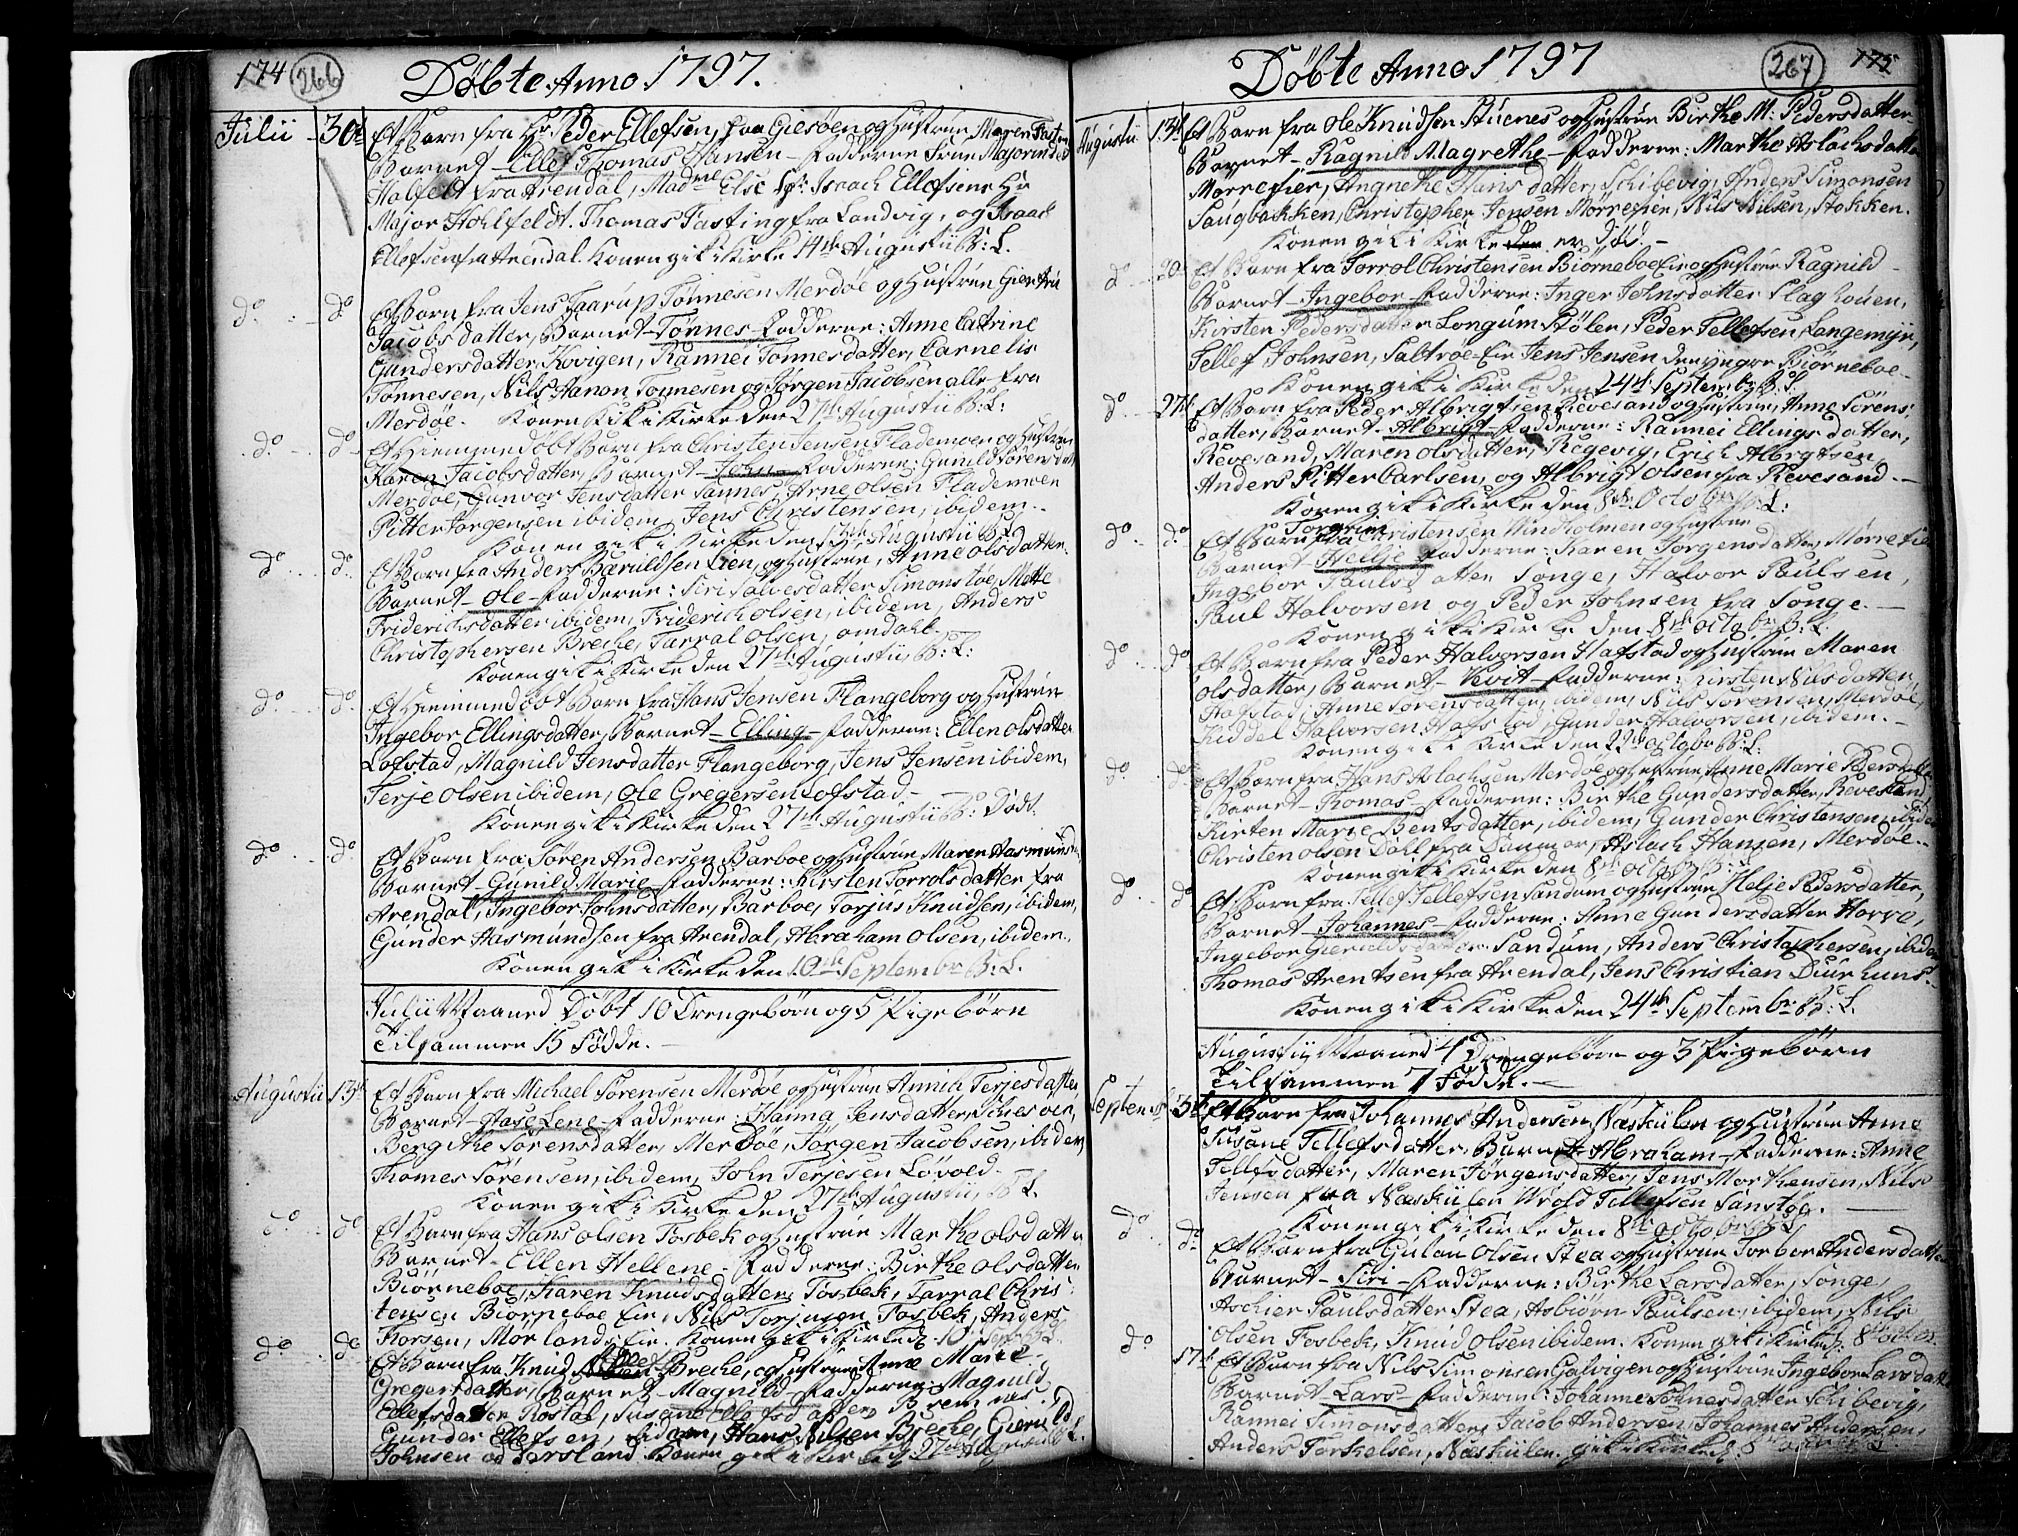 174 266 Döbte Anno 1797.
Julii 30te Et Barn fra Hr Peder Ellefsen, paa Giesøen og Hustrue Maren Fasting
Barnet - Ellef Thomas Hansen - Fadderne: Frue Majorinde
Holfelt fra Arendal, Madme Else Isaach Ellefsens Hr
Major Hohlfeldt. Thomas Fasting fra Landvig, og Isaac
Ellefsen fra Arendal. Konen gik i Kirke 14de Augustii B: L.
do do Et Barn fra Jens Taarup Tønnesen Merdøe og Hustrue Giertru
Jacobsdatter, Barnet - Tønnes - Fadderne: Anne Catrine
Gundersdatter, Kovigen, Rannei Tønnesdatter, Carnelis
Tønnesen, Nils Hanson Tønnesen og Jørgen Jacobsen alle fra
Merdøe. Konen gik i Kirke den 27de Augustii B: L:
do do Et Hiemmedøbt Barn fra Christen Jensen Flademoen og Hustrue
Karen Jacobsdatter, Barnet - John - Fadderne: Gunild Sørensdatt
Merdøe, Gunvor Jensdatter Sannes, Arne Olsen Flademoen
Pitter Jørgensen ibidem, Jens Christensen, ibidem.
Konen gik i Kirke den 13de Augustii B: L.
do do Et Barn fra Anders Bæruldsen Lien, og Hustrue, Anne Olsdatter
Barnet - Ole - Fadderne: Siri Salvesdatter Simonstøe, Mette
Friderichsdatter ibidem, Friderich Olsen, ibidem, Anders
Christophersen Breche, Tarral Olsen, Omdahl.
Konen gik i Kirke den 27de Augustii, B: L:
do do Et Hiemmedøbt Barn fra Hans Jensen Flangeborg og Hustrue
Ingebor Ellingsdatter, Barnet - Elling - Fadderne: Ellen Olsdatter
Lofstad, Magnild Jensdatter Flangeborg, Jens Jensen ibidem,
Terje Olsen ibidem, Ole Gregersen Lofstad -
Konen gik i Kirke den 27de Augustii B: Dødt.
do do Et Barn fra Søren Andersen Barboe og Hustrue Maren Aasmunds
Barnet - Gunild Marie - Fadderne: Kirsten Torrolsdatter fra
Arendal, Ingebor Johnsdatter, Barboe, Torjus Knudsen, ibidem,
Gunder Aasmundsen fra Arendal, Abraham Olsen, ibidem.
Konen gik i Kirke den 10de Septembr B: L.
Julii Maaned Døbt 10 Drengebørn og 5 Pigebørn
Tilsammen 15 Fødde. -
Augustii 13de Et Barn fra Michael Sørensen Merdøe og Hustrue Annich Terjesdatter
Barnet - Aase Lene - Fadderne: Hanna Jensdatter,
Bergithe Sørensdatter, Merdøe, Jørgen Jacobsen, ibidem
Thomes Sørensen, ibidem, John Terjesen Løvold -
Konen gik i Kirke den 27de Augustii, B: L.
do do Et Barn fra Hans Olsen Fosbek og Hustrue Marthe Olsdatter
Barnet - Ellen Hellene - Fadderne: Birthe Olsdatter
Biørneboe, Karen Knudsdatter Fosbek, Tarral Chris
tensen Biørneboe Eie, Nils Torjusen Fosbek, Anders
Thorsen, Morlands Eie. Konen gik i Kirke d. 10 Septbr B: L
do do Et Barn fra Knud Ellefs Breche, og Hustrue Anne Marie
Gregersdatter, Barnet - Magnild - Fadderne: Magnild
Ellefsdatter Røstøl, Susane Ellefsdatter, Bremnes,
Gunder Ellefsen, ibidem, Hans Nilsen Breche, Gieruld
Johnsen og Torsland. Konen gik i Kirke d. 27de Augustii B: L.
Döbte Anno 1797 267 175
Augustii 13de Et Barn fra Ole Knudsen Stuenes og Hustrue Birthe M: Pedersdatter
Barnet - Ragnild Magrethe - Fadderne: Marthe Aslachsdatter
Mørrefier, Angnethe Harisdatter, Schibevig, Anders Simonsen
Saugbakken, Christopher Jensen Mørrefier, Nils Nilsen, Stokken.
Konen gik i Kirke er død. -
do 20 Et Barn fra Torrol Christensen Biørneboe Eie og Hustrue Ragnild -
Barnet - Ingebor - Fadderne: Inger Johnsdatter Flaghouen,
Kirsten Pedersdatter Longum Støler, Peder Tellefsen, Langemyr,
Tellef Johnsen, Saltrøe Eie Jens Jensen den yngre Biørneboe -
Konen gik i Kirke den 24de Septembr B: L.
do 27de Et Barn fra Peder Albrigtsen Revesand og Hustrue, Anne Sørens
datter, Barnet - Albrigt - Fadderne: Rannei Ellingsdatter,
Revesand, Maren Olsdatter, Regevig, Erich Albrgtsen,
Anders Pitter Carlsen, og Albrigt Olsen fra Revesand. -
Konen gik i Kirke den 8de Octobr B: L:
do do Et Barn fra Torgrim Christensen Vindholmen og Hustrue
Barnet - Hellje - Fadderne: Karen Jørgensdatter, Mørrefier
Ingebor Paulsdatter Songe, Halvor Paulsen,
Paul Halvorsen og Peder Johnsen fra Songe. -
Konen gik i Kirke den 8de Octobr B: L.
do do Et Barn fra Peder Halvorsen Hafstad og Hustrue Maren
Olsdatter, Barnet - Kevit - Fadderne: Kirsten Nilsdatter,
Hafstad, Anne Sørensdatter, ibidem, Nils Sørensen, Merdøe,
Kiddel Halvorsen Hafstad, Gunder Halvorsen, ibidem. -
Konen gik i Kirke den 22de Octobr B: L:
do do Et Barn fra Hans Aslachsen Merdøe og Hustrue Anne Marie Pedersdatter
Barnet - Thomas - Fadderne: Birthe Gundersdatter, Revesand,
Kirten Marie Bentsdatter, ibidem, Gunder Christensen, ibidem
Christen Olsen Dahl fra Danmor, Aslach Hansen, Merdøe -
Konen gik i Kirke den 8de Octobr B: L.
do do Et Barn fra Tellef Tellefsen Sandum og Hustrue Helje Pedersdatter,
Barnet - Johannes - Fadderne: Anne Gundersdatter Horre,
Ingebor Gierulds datter Sandum, Anders Christophersen, ibidem
Thomas Arentsen fra Arendal, Jens Christien Duurhuus.
Konen gik i Kirke den 24de Septembr B: L.
Augustii Maaned 4 Drengebørn og 3 Pigebørn
Tilsammen 7 Fødde. -
Septembr 3de Et Barn fra Johannes Andersen Næskilen og Hustrue Anne
Susane Tellefsdatter, Barnet - Abraham - Fadderne: Anne
Tellefsdatter, Maren Jørgensdatter, Jens Morthensen, Nils
Jensen fra Næskilen Wrold Tellefsen Sanstøe. -
Konen gik i Kirke den 8de Octobr B: L.
do do Et Barn fra Gulov Olsen Stea og Hustrue Torbor Andersdatter
Barnet - Siri - Fadderne: Birthe Larsdatter, Songe,
Aschier Paulsdatter Stea, Asbiørn Paulsen, ibidem, Nils
Olsen Fosbek, Knud Olsen ibidem. Konen gik i Kirke d: 8de Octbr
do 17de Et Barn fra Nils Simonsen Galvigen og Hustrue Ingebor Larsdatter
Barnet - Lars - Fadderne: Johanne Tohnesdatter Schibevig,
Rannei Simonsdatter, Jacob Andersen, Johannes Andersen,
Anders Torkelsen, Næskilen. gik i Kirke d: 8